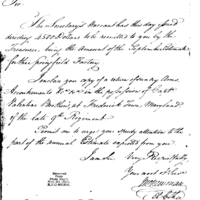 Sir,
The Secretary's Warrant has this day issued
directing 4500 Dollars to be remitted to you by the
Treasurer, being the amount of the September Estimate
for the Springfield Factory.
I enclose you copy of a return of ordny Arms
Accoutrements &c in the possession of Capt
at Frederick Town, Maryland
of the late 9th Regiment.
Permit me to urge your steady attention to the
part of the annual Estimate expected from you
I am Sir Very Respectfully
Your most ob Serv